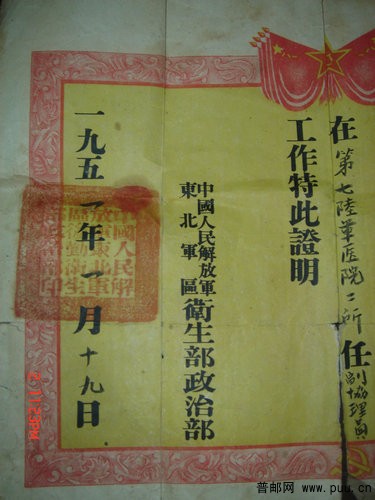 在第七陸軍医院二所任副協理員
工作特此證明
中國人民解放軍
東北軍區
衛生部政治部
一九五一年一月十九日
中國人民解
放軍東北軍
區後勤衛生
普邮网
www.puu.cn